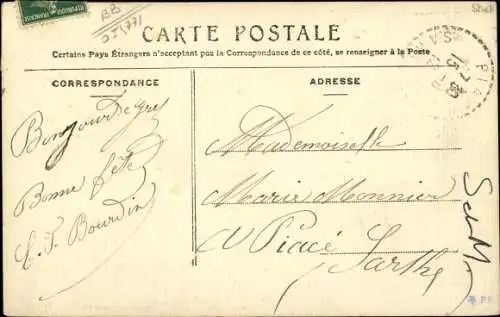 CARTE POSTALE
Certains Pays Étrangers n'acceptant pas la Correspondance de ce côté, se renseigner à la Poste
CORRESPONDANCE
ADRESSE
Bonjour de
Bonne fête
Bourdin
Mademoiselle
Marie Monnier
à Piacé
Sarthe